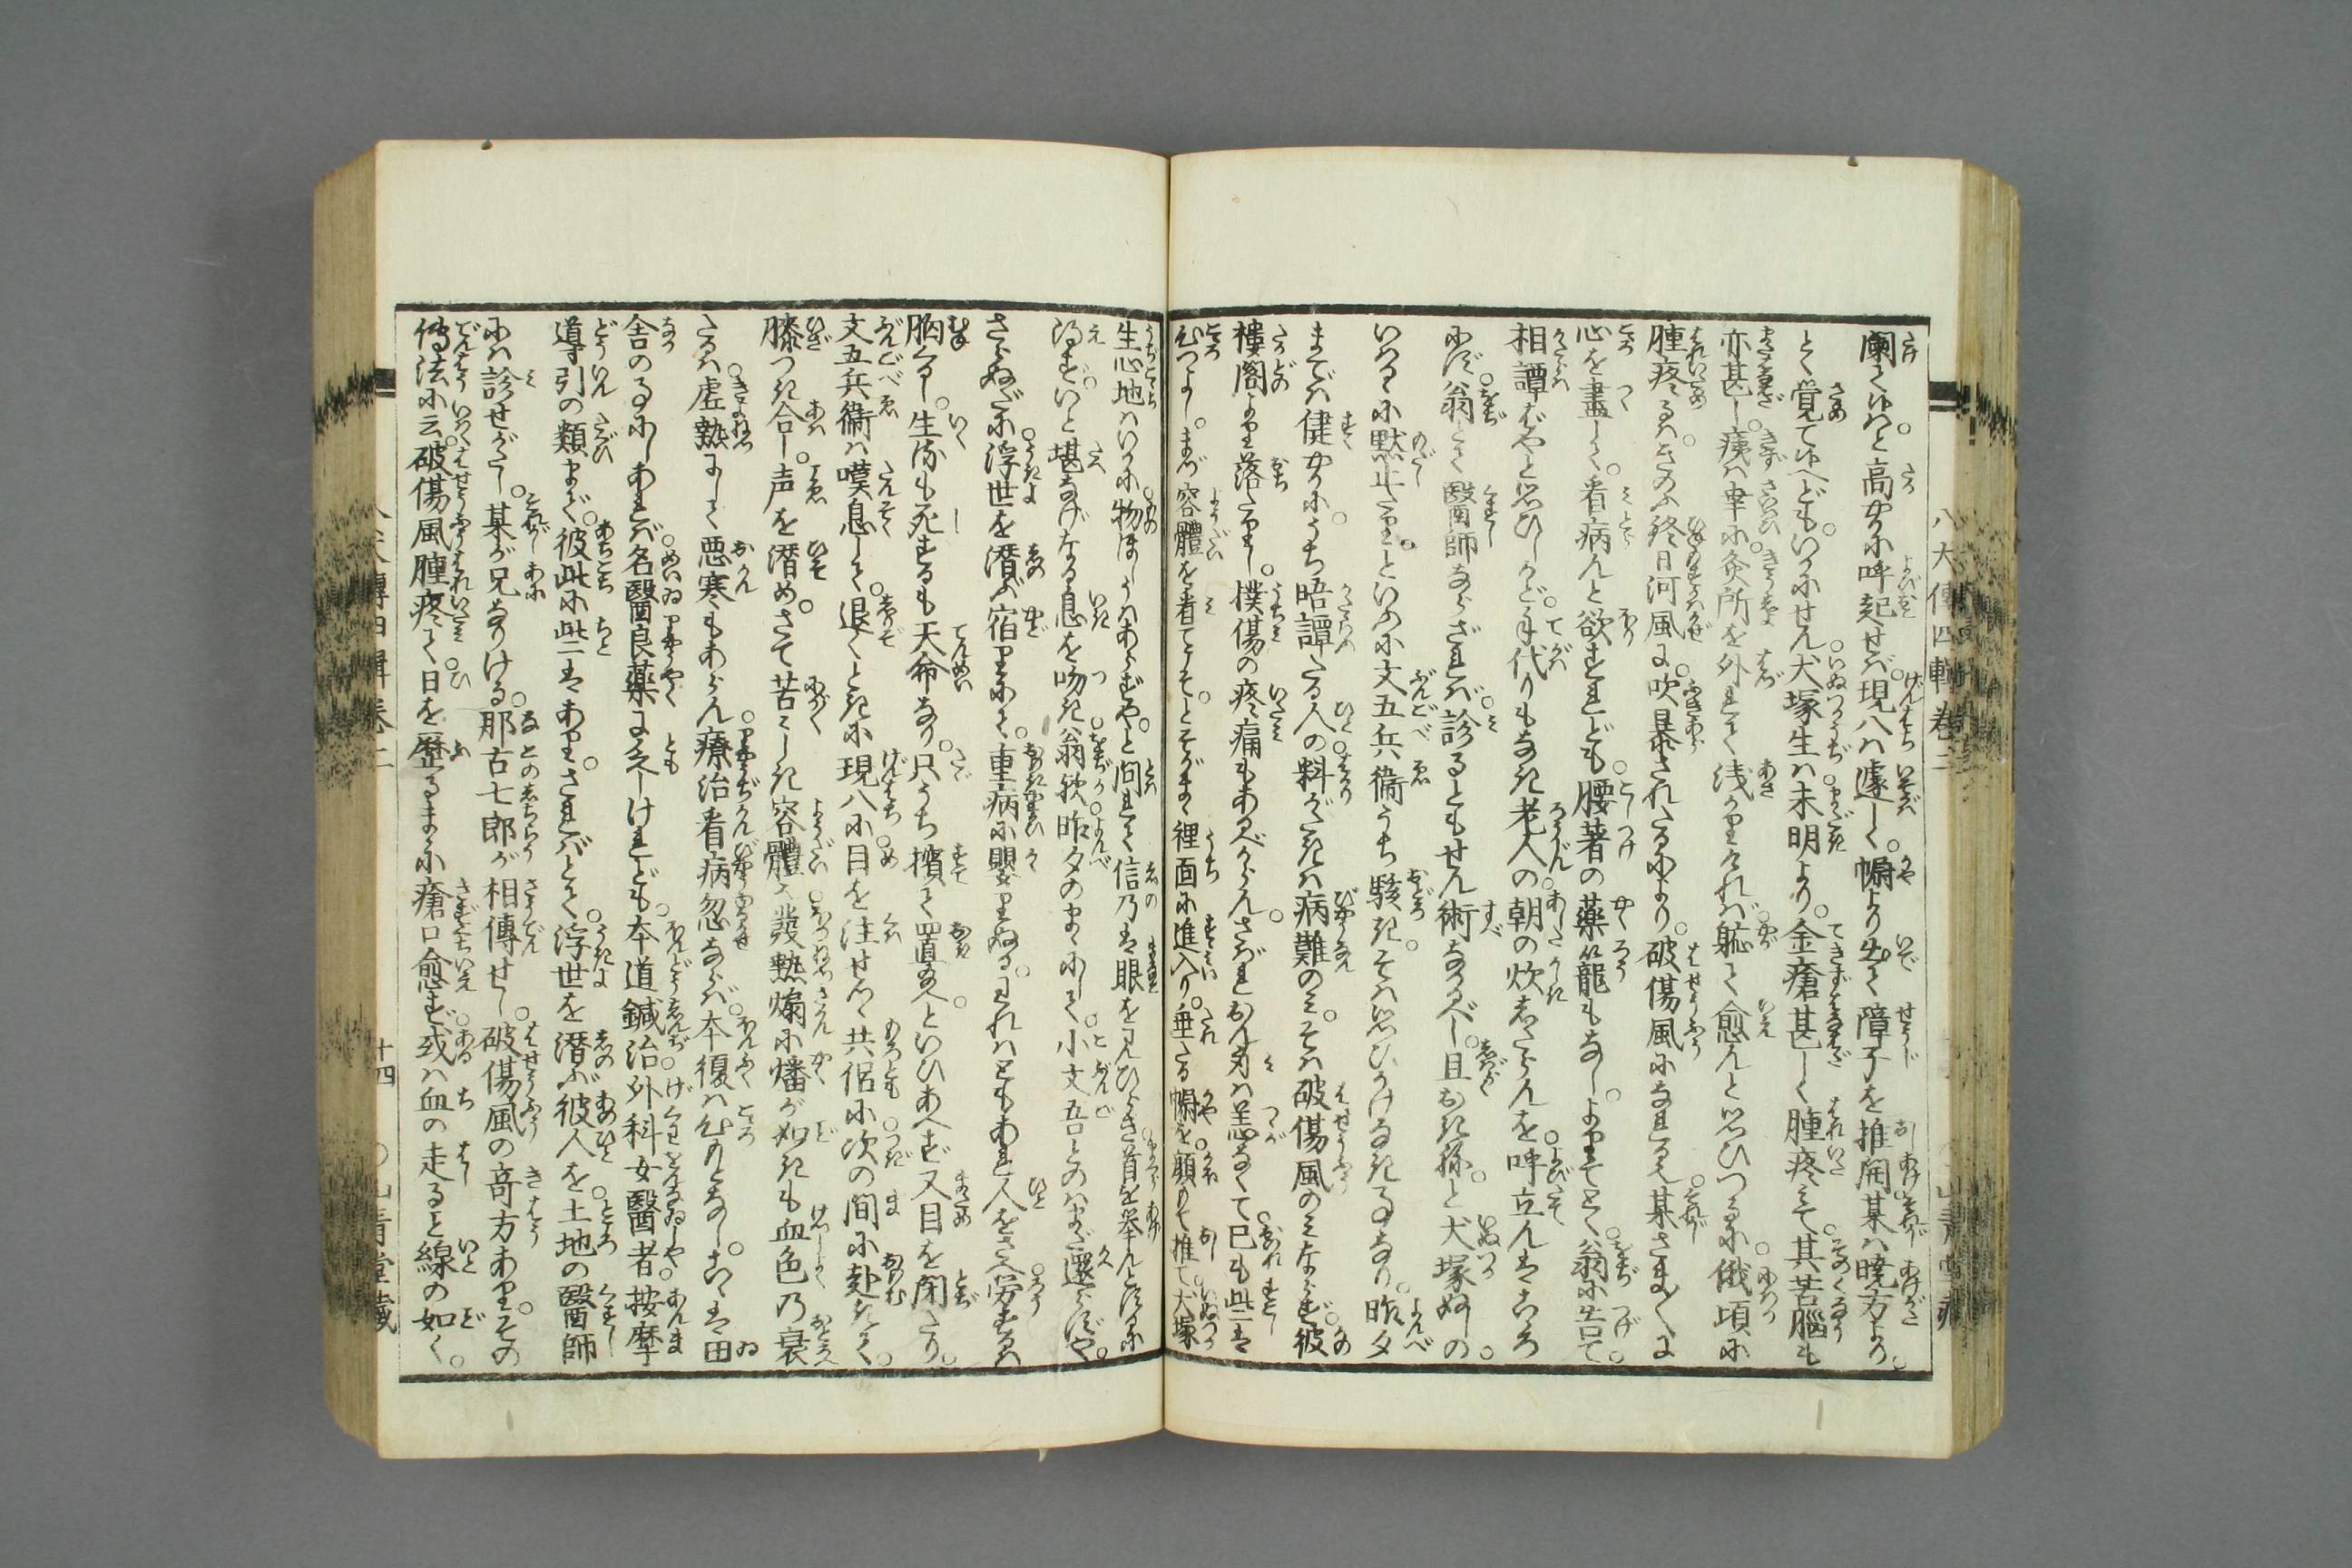 闌て候はと高やかに呼起せば現八は遽しく幮より出て障子を推開某は暁方より
とく覚て候へどもいかにせん犬塚生は未明より金瘡甚しく腫疼みて其苦腦も
亦甚し痍は幸に灸所を外れて浅かりければ軈て愈んと思ひつるに俄頃に
腫疼るはきのふ終日河風に吹暴されたるにより破傷風になれるぞ某さま〴〵に
心を盡して看病んと欲すれども腰著の薬籠もなしよりてとく翁に告て
相譚ばやと思ひしかど手代りもなき老人の朝の炊きならんを呼立んはこゝろ
にず翁とて醫師ならざれば診るともせん術なかるべし且おき給と犬塚ぬしの
いはるゝに黙止たりといふに文五兵衞うち駭きそは思ひかけなき事なり昨夕
までは健やかにうち晤譚たる人の料がたきは病難のみそは破傷風のみならず彼
樓閣より落たりし撲傷の疼痛もあるべからんさばれおん身は恙なくて已も些は
心つよしまづ容體を看てこそとそがまゝ裡面に進入り垂たる幮を顧みて推て犬塚
生心地はいかに物ほしうはあらずやと問れて信乃は眼を見ひらき首を挙んとするに
得ずいと堪なげなる息を吻き翁歟昨夕のまゝにして小文吾とのはまだ還らずや
さらぬだに浮世を潜ぶ宿りにて重病に嬰りぬるわれはともあれ人をさへ労するは
胸くるし生るも死するも天命なり只うち擯て置給へといひあへず又目を閉たり
文五兵衞は嘆息して退くときに現八に目を注せつゝ共侶に次の間に赴きて
膝つき合し声を潜めさて苦々しき容體也發熱煩に燔が如きも血色乃衰
たるは虚熱にして悪寒もあらん療治看病忽ならば本復は心もとなしこゝは田
舎の事にしあれば名醫良藥に乏しけれども本道鍼治外科女醫者按摩
導引の類まで彼此に些はありさればとて浮世を潜ぶ彼人を土地の醫師
には診せがたし某が兄なりける那古七郎が相傳せし破傷風の竒方ありその
傳法に云破傷風腫疼て日を歴るまゝに瘡口愈ず或は血の走ると線の如く
八犬傳四輯卷二
十四
○山青堂藏